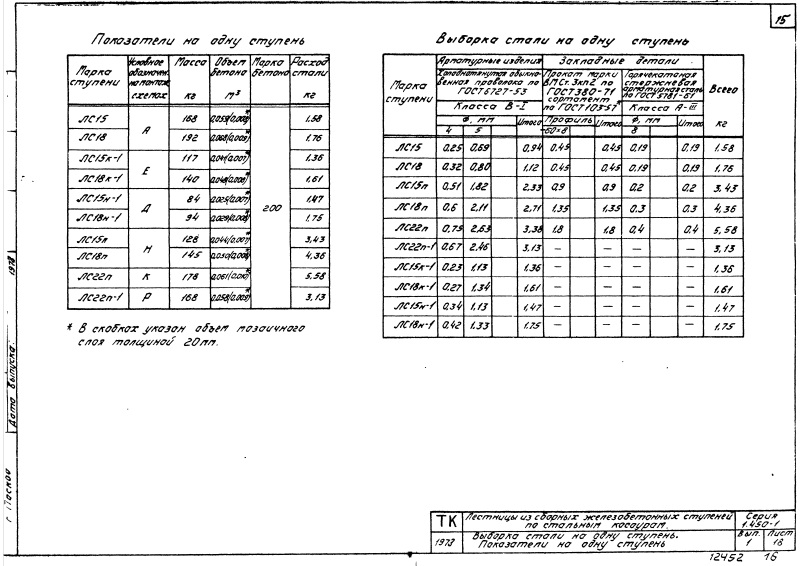 15
Показатели на одну ступень
Марка ступени | Условное обозначен. на монтаж. схемах | Масса кг | Объем бетона м³ | Марка бетона | Расход стали кг
ЛС15 | А | 168 | | 200 | 1,58
ЛС18 | 192 | | 1,76
ЛС15к-1 | Е | 117 | | 1,36
ЛС18к-1 | 140 | | 1,61
ЛС15н-1 | Д | 84 | | 1,47
ЛС18н-1 | 94 | | 1,75
ЛС15п | Н | 128 | | 3,43
ЛС18п | 145 | | 4,36
ЛС22п | К | 178 | | 5,58
ЛС22п-1 | Р | 168 | | 3,13
* В скобках указан объем мозаичного
слоя толщиной 20мм.
Выборка стали на одну ступень
Марка ступени | Арматурные изделия | Закладные детали | Всего кг
Холоднотянутая обыкновенная проволока по ГОСТ 6727-53 | Прокат марки ВМСт.3кп2 по ГОСТ 380-71 сортамент по ГОСТ 103-57* | Горячекатаная стержневая арматурная сталь по ГОСТ 5781-61
Класса В-I | Класса А-III
Ф, мм | Итого | Профиль | Итого | Ф, мм | Итого
4 | 5 | -60×8 | 8
ЛС15 | 0,25 | 0,69 | 0,94 | 0,45 | 0,45 | 0,19 | 0,19 | 1,58
ЛС18 | 0,32 | 0,80 | 1,12 | 0,45 | 0,45 | 0,19 | 0,19 | 1,76
ЛС15п | 0,51 | 1,82 | 2,33 | 0,9 | 0,9 | 0,2 | 0,2 | 3,43
ЛС18п | 0,6 | 2,11 | 2,71 | 1,35 | 1,35 | 0,3 | 0,3 | 4,36
ЛС22п | 0,75 | 2,63 | 3,38 | 1,8 | 1,8 | 0,4 | 0,4 | 5,58
ЛС22п-1 | 0,67 | 2,46 | 3,13 | — | — | — | — | 3,13
ЛС15к-1 | 0,23 | 1,13 | 1,36 | — | — | — | — | 1,36
ЛС18к-1 | 0,27 | 1,34 | 1,61 | — | — | — | — | 1,61
ЛС15н-1 | 0,34 | 1,13 | 1,47 | — | — | — | — | 1,47
ЛС18н-1 | 0,42 | 1,33 | 1,75 | — | — | — | — | 1,75
Дата выпуска
ТК | Лестницы из сборных железобетонных ступеней по стальным косоурам. | Серия 1.450-1
Выборка стали на одну ступень. Показатели на одну ступень | Вып. 1 | Лист 18
12452 16